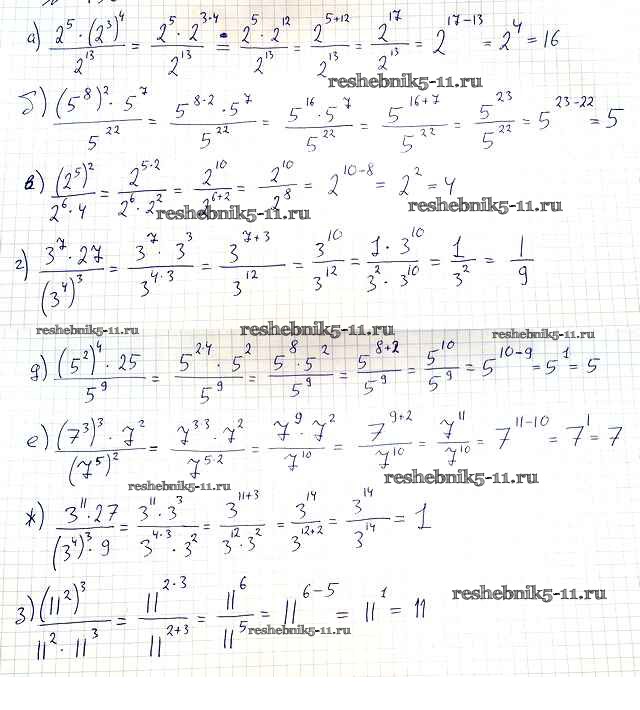 а) (2^5 · (2^3)^4)/2^13 = (2^5 · 2^(3·4))/2^13 = (2^5 · 2^12)/2^13 = 2^(5+12)/2^13 = 2^17/2^13 = 2^(17-13) = 2^4 = 16
reshebnik5-11.ru
б) ((5^8)^2 · 5^7)/5^22 = (5^(8·2) · 5^7)/5^22 = (5^16 · 5^7)/5^22 = 5^(16+7)/5^22 = 5^23/5^22 = 5^(23-22) = 5
в) (2^5)^2/(2^6 · 4) = 2^(5·2)/(2^6 · 2^2) = 2^10/2^(6+2) = 2^10/2^8 = 2^(10-8) = 2^2 = 4
reshebnik5-11.ru reshebnik5-11.ru
г) (3^7 · 27)/(3^4)^3 = (3^7 · 3^3)/3^(4·3) = 3^(7+3)/3^12 = 3^10/3^12 = (1 · 3^10)/(3^2 · 3^10) = 1/3^2 = 1/9
reshebnik5-11.ru reshebnik5-11.ru reshebnik5-11.ru
д) ((5^2)^4 · 25)/5^9 = (5^(2·4) · 5^2)/5^9 = (5^8 · 5^2)/5^9 = 5^(8+2)/5^9 = 5^10/5^9 = 5^(10-9) = 5^1 = 5
е) ((7^3)^3 · 7^2)/(7^5)^2 = (7^(3·3) · 7^2)/7^(5·2) = (7^9 · 7^2)/7^10 = 7^(9+2)/7^10 = 7^11/7^10 = 7^(11-10) = 7^1 = 7
reshebnik5-11.ru reshebnik5-11.ru
ж) (3^11 · 27)/((3^4)^3 · 9) = (3^11 · 3^3)/(3^(4·3) · 3^2) = 3^(11+3)/(3^12 · 3^2) = 3^14/3^(12+2) = 3^14/3^14 = 1
з) (11^2)^3/(11^2 · 11^3) = 11^(2·3)/11^(2+3) = 11^6/11^5 = 11^(6-5) = 11^1 = 11
reshebnik5-11.ru
reshebnik5-11.ru